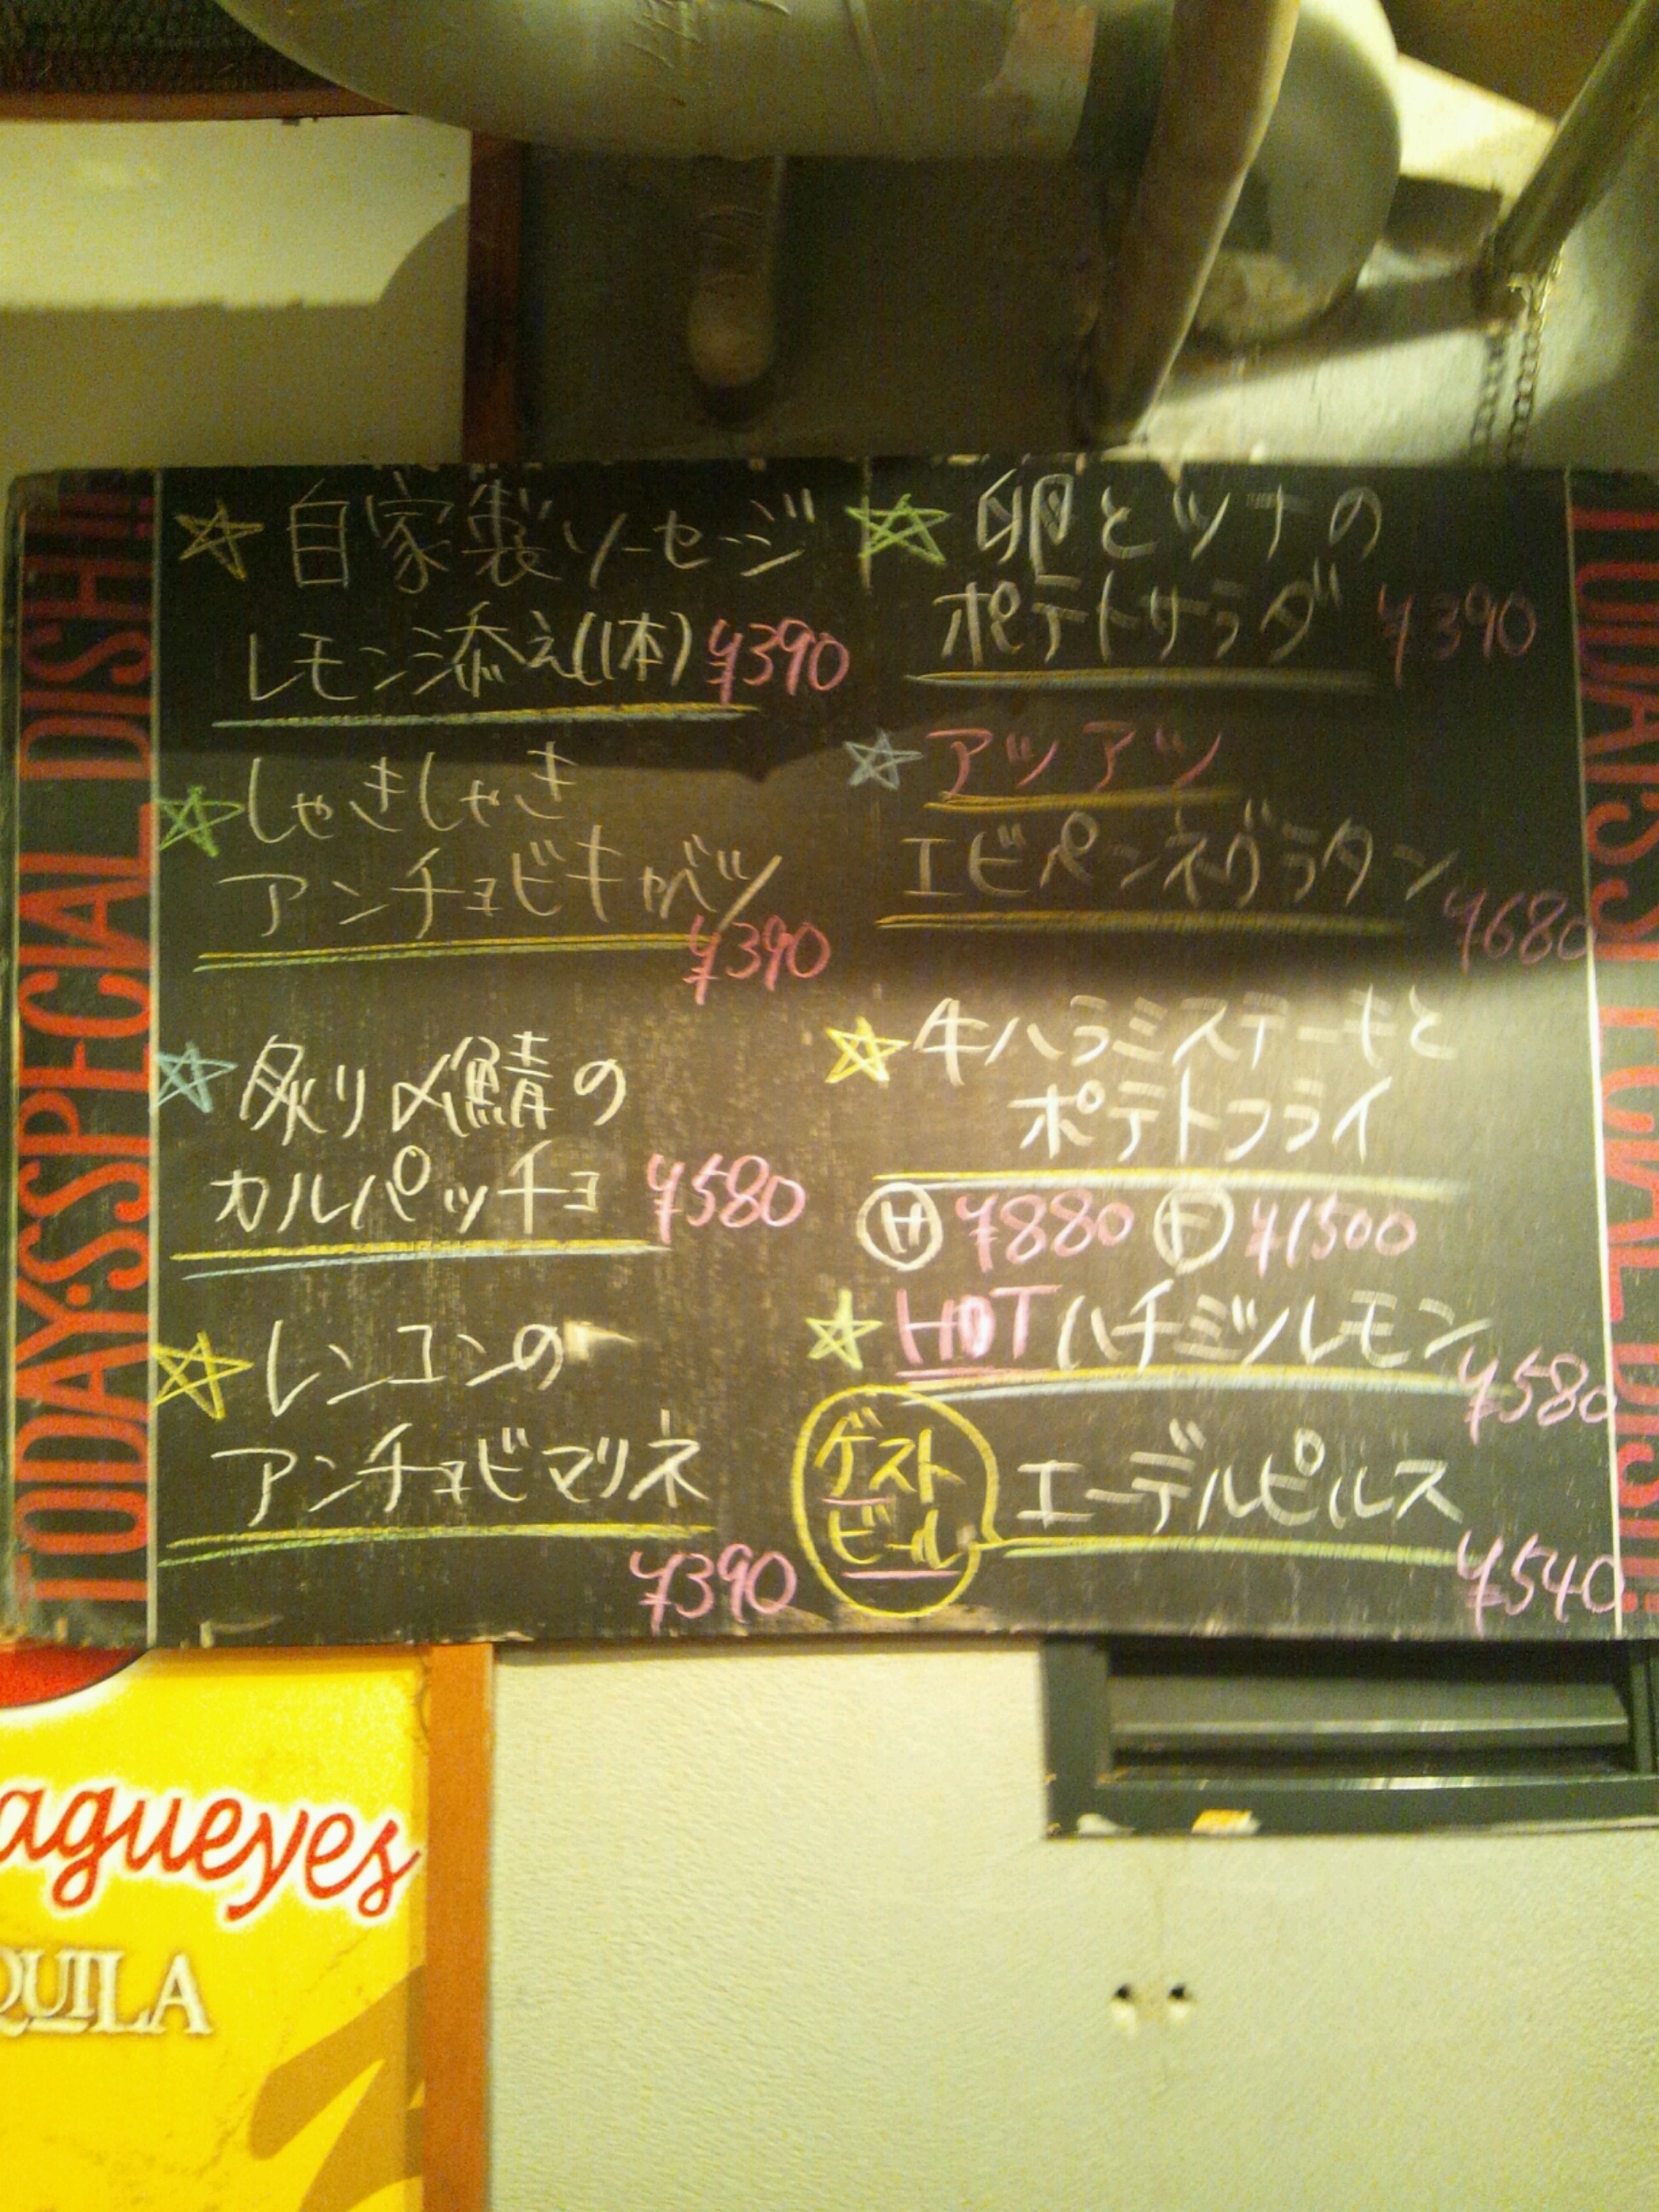 TODAY'S SPECIAL DISH!!!
自家製ソーセージ
レモン添え(1本) ¥390
しゃきしゃき
アンチョビキャベツ
¥390
炙り〆鯖の
カルパッチョ ¥580
レンコンの
アンチョビマリネ
¥390
卵とツナの
ポテトサラダ ¥390
アツアツ
エビペンネグラタン
¥680
牛ハラミステーキと
ポテトフライ
Ⓗ ¥880 Ⓕ ¥1500
HOT ハチミツレモン
¥580
ゲスト
ビール
エーデルピルス
¥540
TODAY'S SPECIAL DISH!!!
agueyes
QUILA